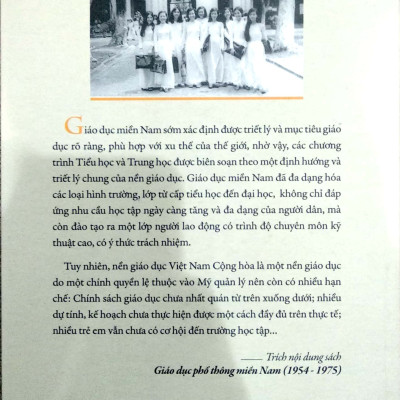 Giáo dục miền Nam sớm xác định được triết lý và mục tiêu giáo
dục rõ ràng, phù hợp với xu thế của thế giới, nhờ vậy, các chương
trình Tiểu học và Trung học được biên soạn theo một định hướng và
triết lý chung của nền giáo dục. Giáo dục miền Nam đã đa dạng hóa
các loại hình trường, lớp từ cấp tiểu học đến đại học, không chỉ đáp
ứng nhu cầu học tập ngày càng tăng và đa dạng của người dân, mà
còn đào tạo ra một lớp người lao động có trình độ chuyên môn kỹ
thuật cao, có ý thức trách nhiệm.
Tuy nhiên, nền giáo dục Việt Nam Cộng hòa là một nền giáo dục
do một chính quyền lệ thuộc vào Mỹ quản lý nên còn có nhiều hạn
chế: Chính sách giáo dục chưa nhất quán từ trên xuống dưới; nhiều
dự tính, kế hoạch chưa thực hiện được một cách đầy đủ trên thực tế;
nhiều trẻ em vẫn chưa có cơ hội đến trường học tập...
Trích nội dung sách
Giáo dục phổ thông miền Nam (1954 - 1975)